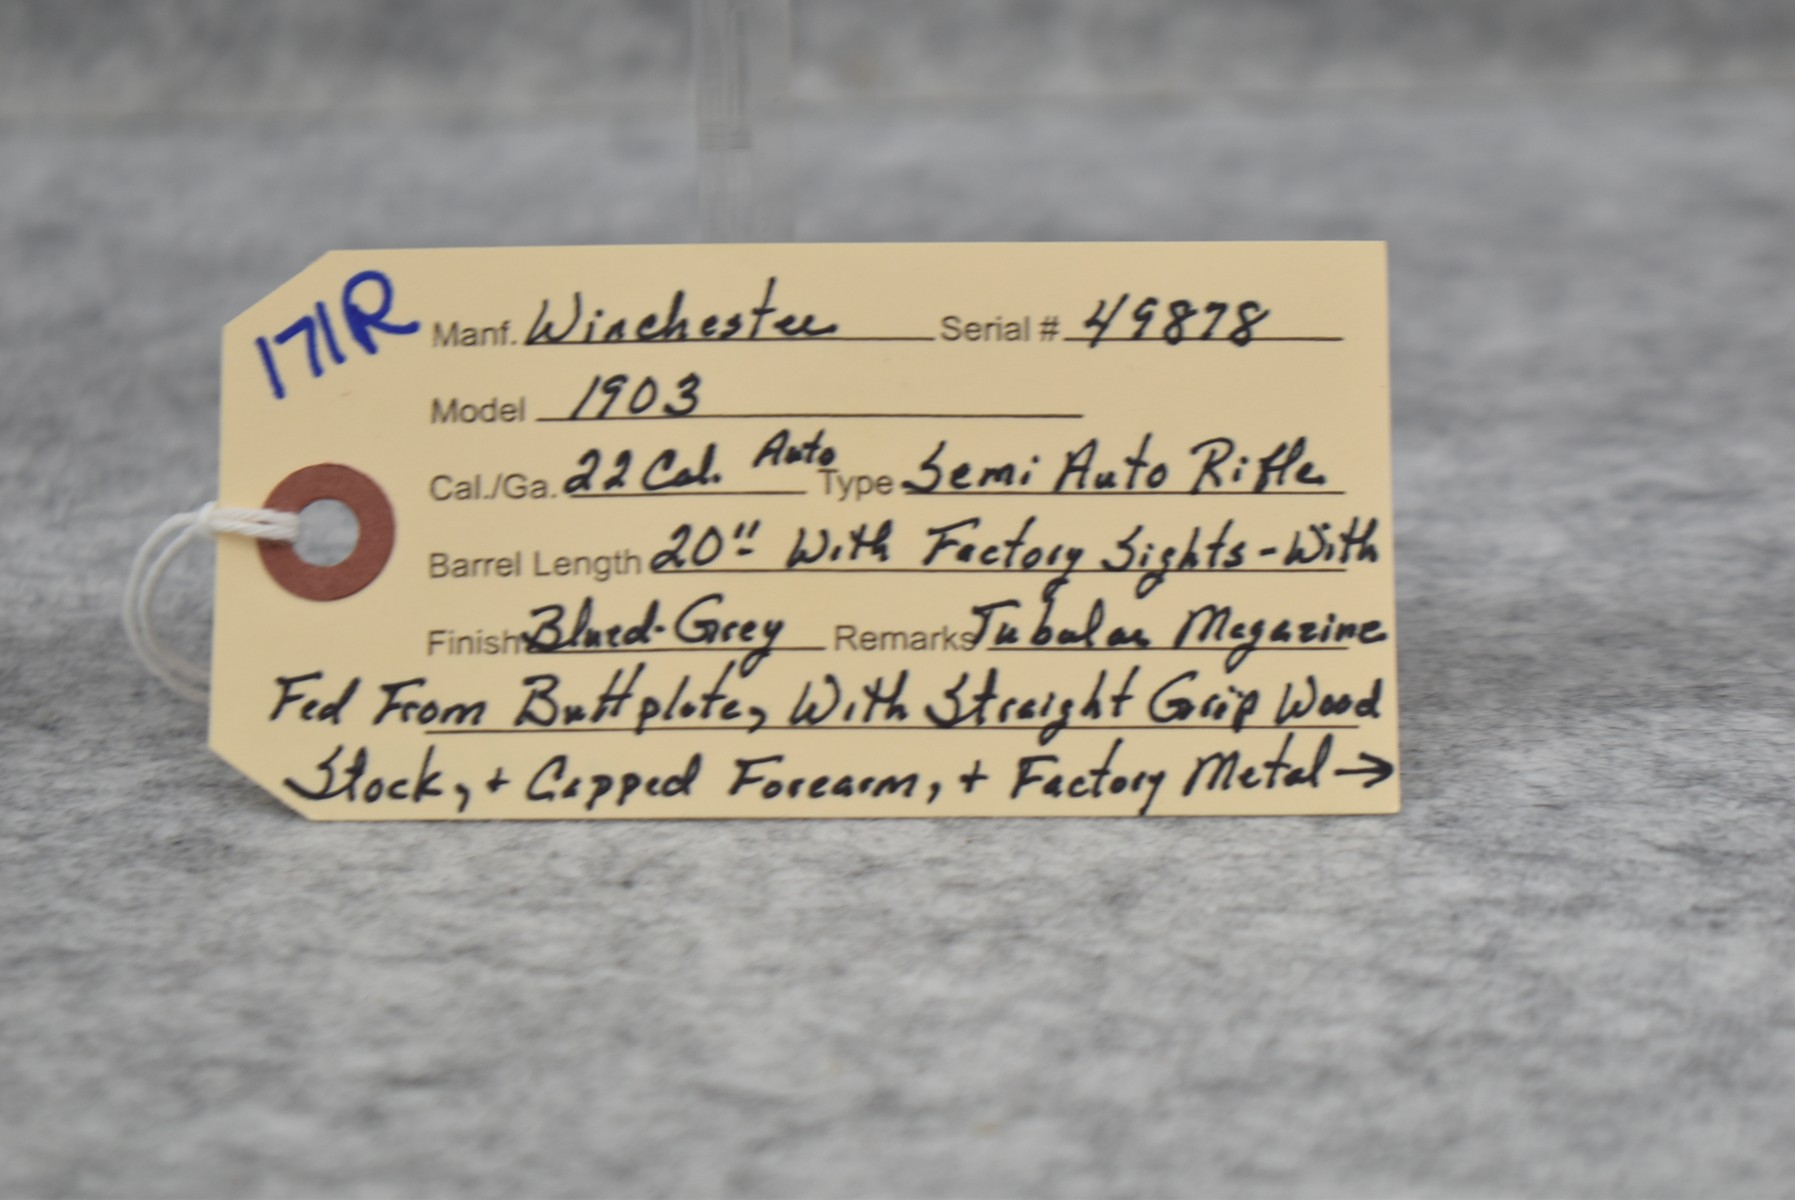 171R
Manf. Winchester Serial # 49878
Model 1903
Cal./Ga. 22 Cal. Auto Type Semi Auto Rifle
Barrel Length 20" With Factory Sights - With
Finish Blued-Grey Remarks Tubular Magazine
Fed From Buttplate, With Straight Grip Wood
Stock, + Capped Forearm, + Factory Metal →